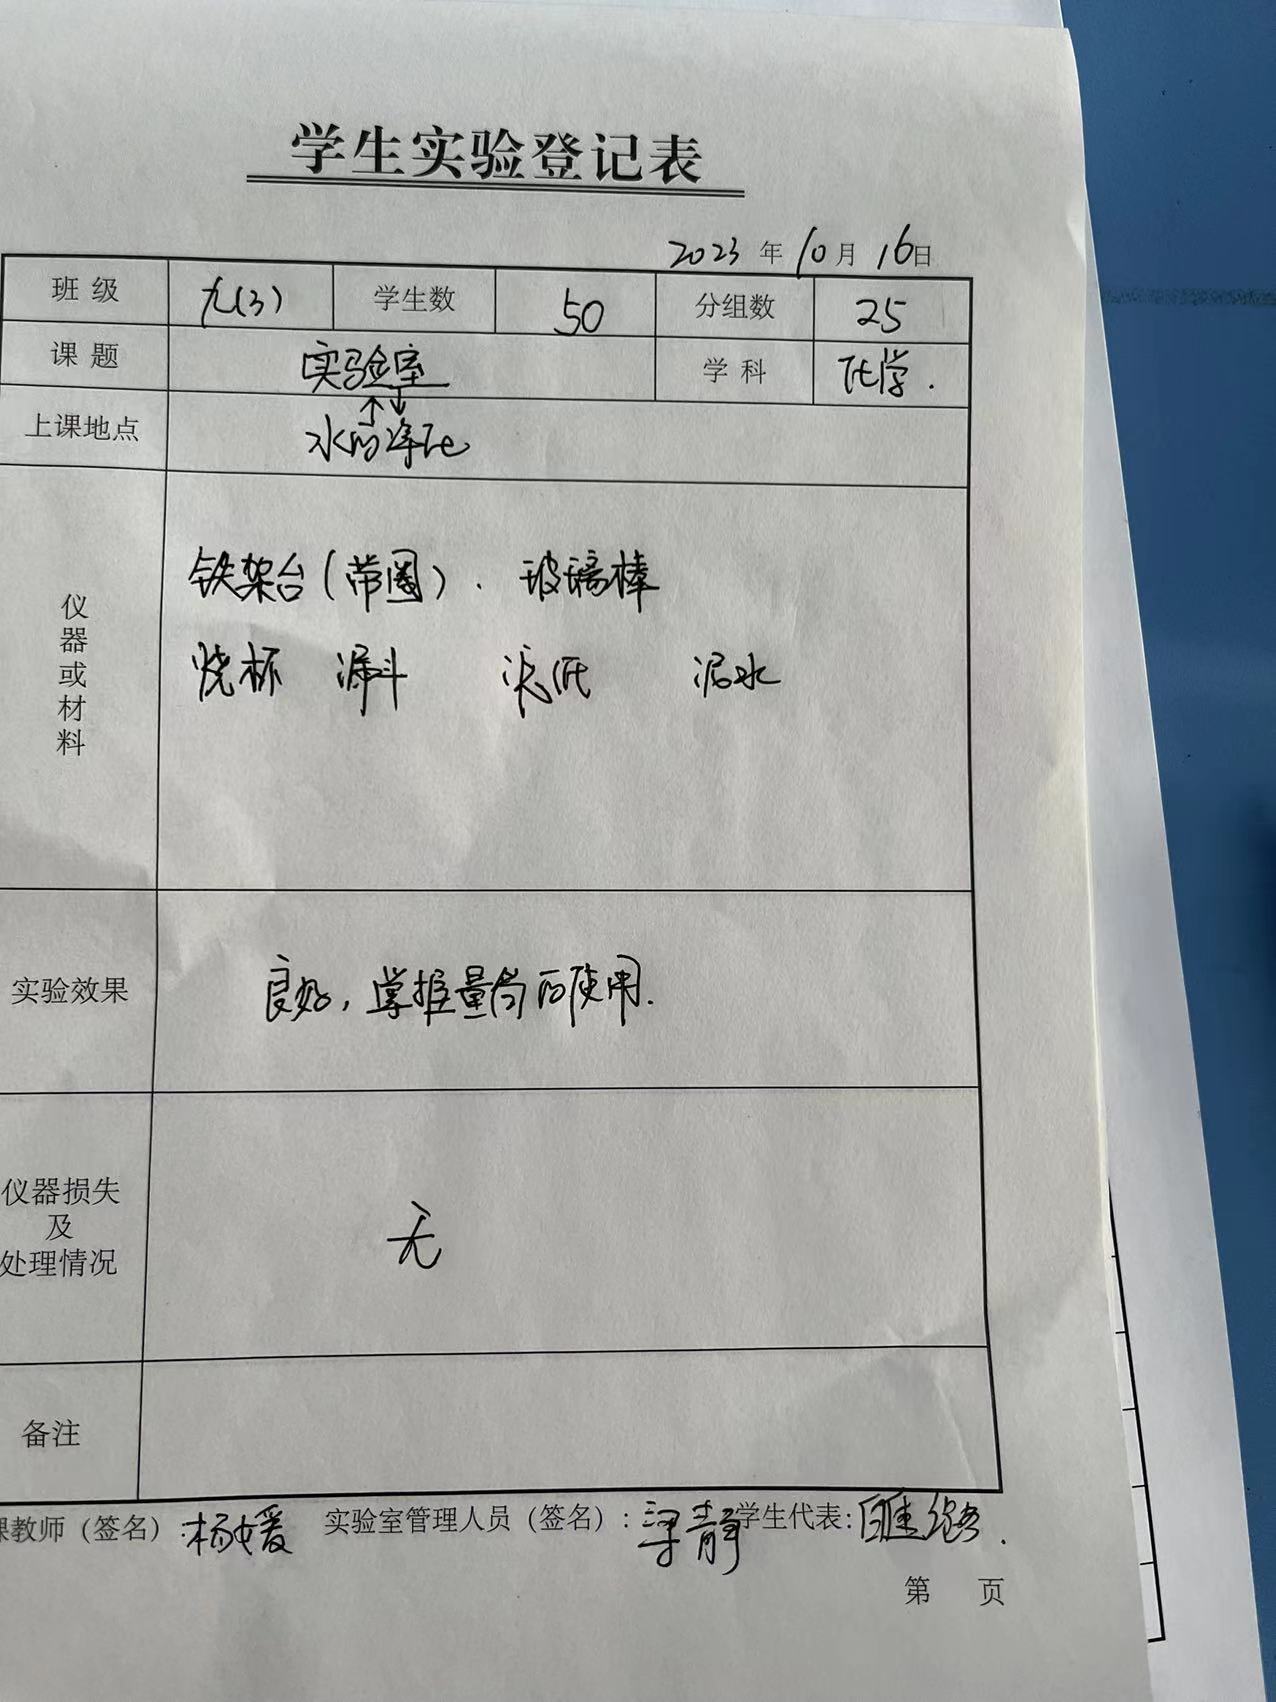 学生实验登记表
2023 年 10 月 16日
班级 九(3) 学生数 50 分组数 25
课题 实验室 学科 化学.
↑↓
上课地点 水的净化
仪器或材料
铁架台(带圈). 玻璃棒
烧杯 漏斗 滤纸 泥水
实验效果 良好,掌握量筒的使用.
仪器损失
及
处理情况
无
备注
课教师(签名):杨媛 实验室管理人员(签名):梁静 学生代表:
第 页